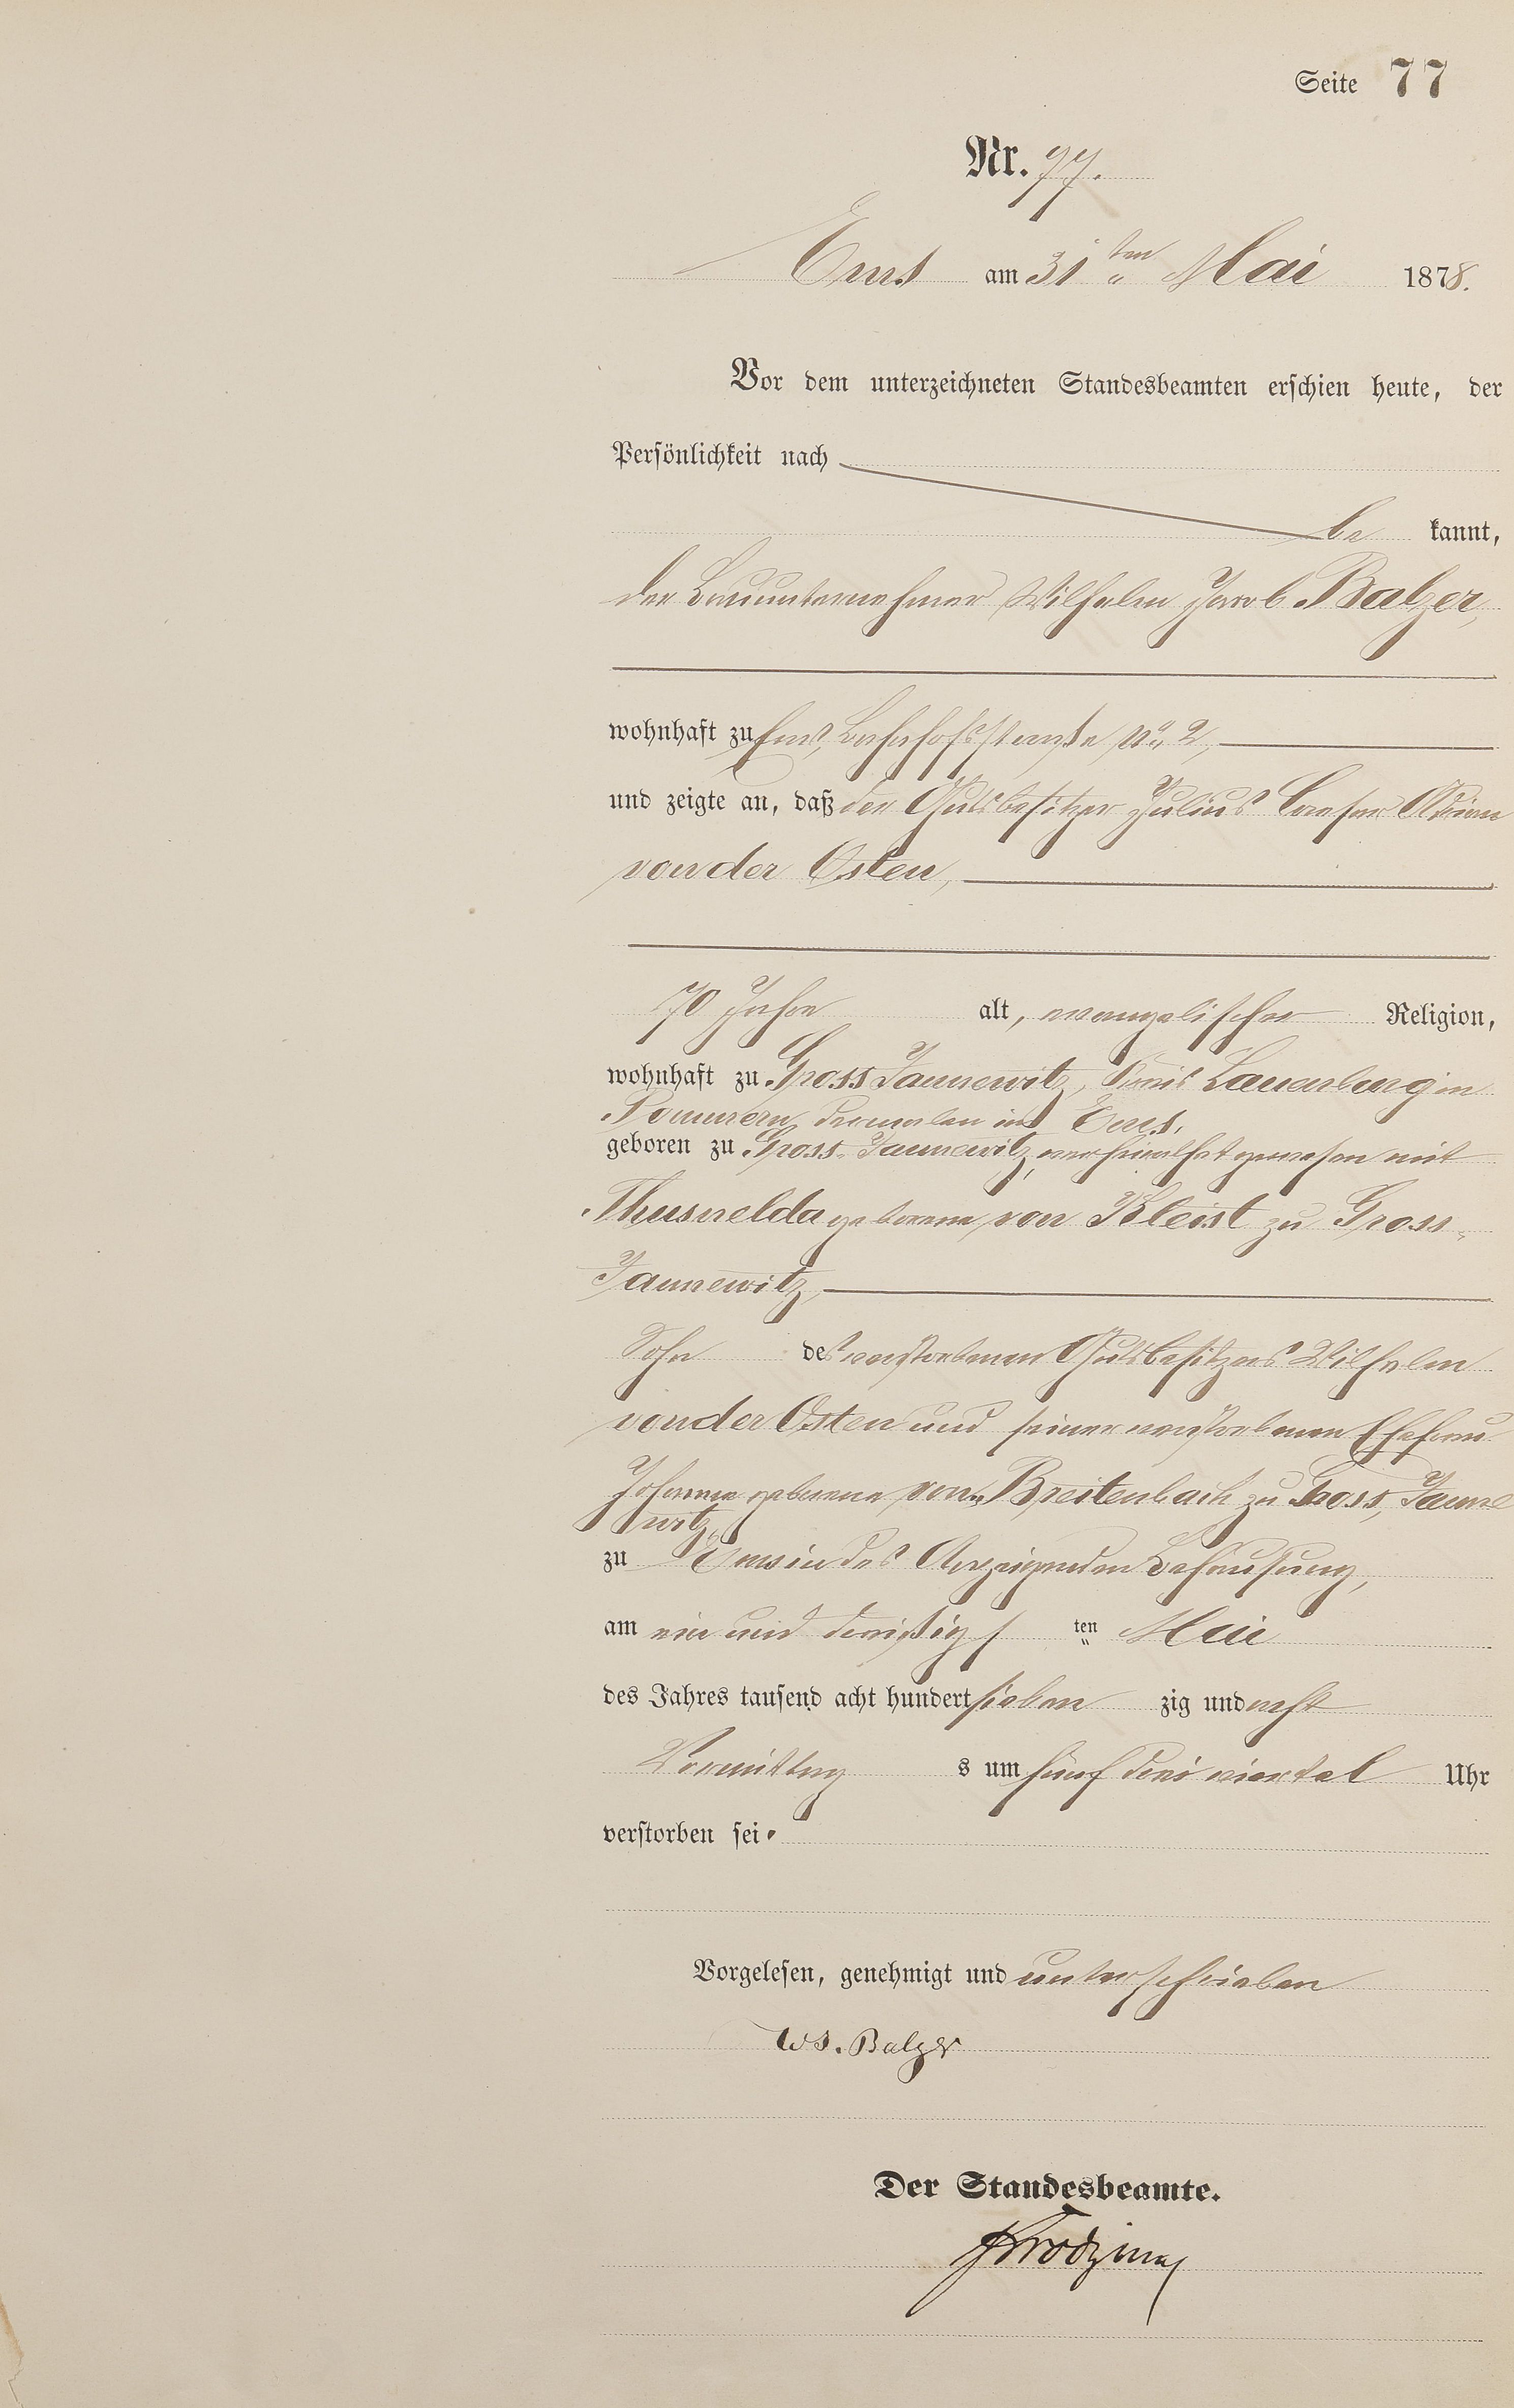 Seite 77
Nr. 77.
Ems am 31ten Mai 1878.
Vor dem unterzeichneten Standesbeamten erschien heute, der
Persönlichkeit nach
be kannt,
der Bauunternehmer Wilhelm Jacob Balzer,
wohnhaft zu Ems, Bahnhofsstraße No 2,
und zeigte an, daß der Gutsbesitzer Julius Caesar Adrian
von der Osten,
70 Jahre alt, evangelischer Religion,
wohnhaft zu Gross Jannewitz, Kreis Lauenburg in
Pommern, dermalen in Ems,
geboren zu Gross-Jannewitz, verheirathet gewesen mit
Thusnelda geborene von Kleist zu Gross-
Jannewitz,
Sohn des verstorbenen Gutsbesitzers Wilhelm
von der Osten und seiner verstorbenen Ehefrau
Johanna geborene von Breitenbach zu Gross-Janne
witz,
zu Ems in des Anzeigenden Behausung,
am ein und dreißigs ten Mai
des Jahres tausend acht hundert sieben zig und acht
Vormittag s um fünf drei viertel Uhr
verstorben sei.
Vorgelesen, genehmigt und unterschrieben
WJ. Balzer
Der Standesbeamte.